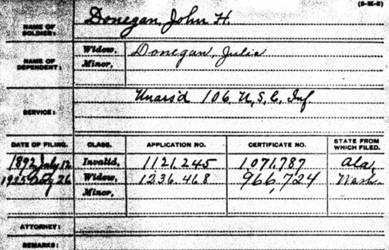 (3-M-2)
NAME OF SOLDIER: Donegan, John H.
NAME OF DEPENDENT: Widow, Donegan, Julia
Minor,
SERVICE: Unas'd 106 U.S.C. Inf.
DATE OF FILING. CLASS. APPLICATION NO. CERTIFICATE NO. STATE FROM WHICH FILED.
1892 July 12 Invalid, 1121.245 1,071,787 Ala,
1925 26 Widow, 1236.468 966,724 Wash.
Minor,
ATTORNEY:
REMARKS: